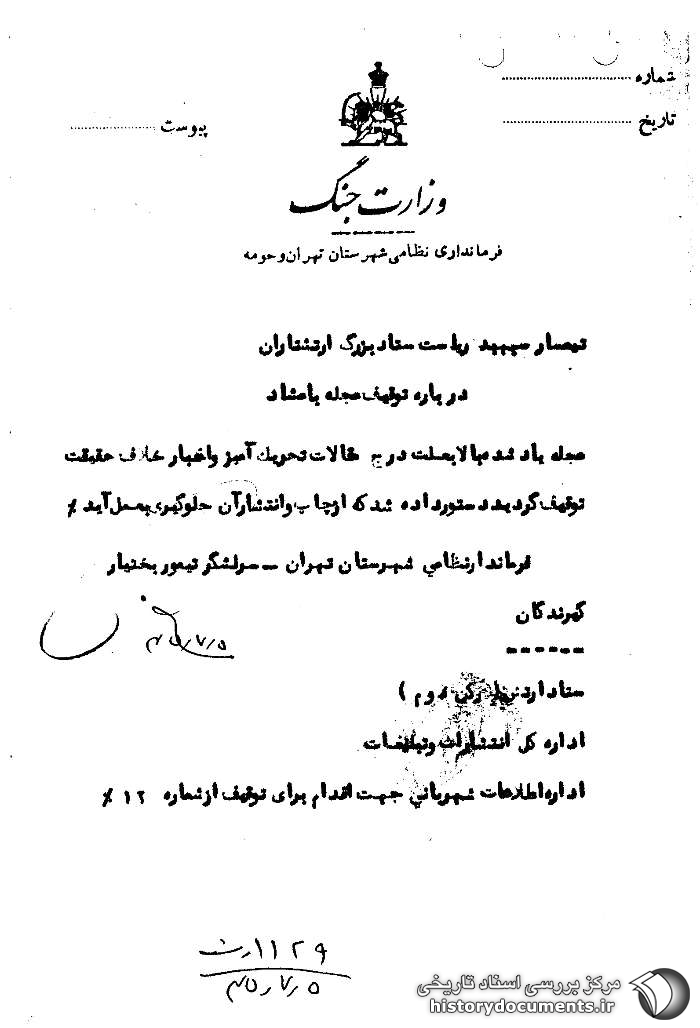 شماره
تاریخ
پیوست
وزارت جنگ
فرمانداری نظامی شهرستان تهران و حومه
تیمسار سپهبد ریاست ستاد بزرگ ارتشتاران
درباره توقیف مجله بامشاد
مجله یاد شده بالا بعلت درج مقالات تحریک آمیز و اخبار خلاف حقیقت
توقیف گردید دستور داده شد که از چاپ و انتشار آن جلوگیری بعمل آید ٪
فرماندار نظامی شهرستان تهران – سرلشگر تیمور بختیار
گیرندگان
ستاد ارتش رکن دوم )
اداره کل انتشارات و تبلیغات
اداره اطلاعات شهربانی جهت اقدام برای توقیف از شماره ۱۲ ٪
مرکز بررسی اسناد تاریخی
historydocuments.ir